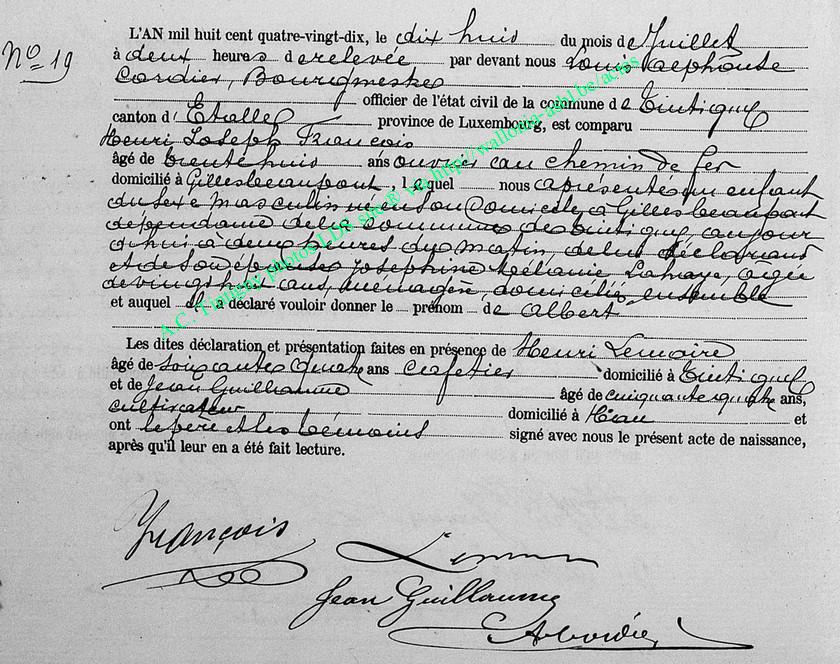 No 19
L'AN mil huit cent quatre-vingt-dix, le dix huit du mois de Juillet
à deux heures de relevée par devant nous Louis Alphonse
Cordier, Bourgmestre
officier de l'état civil de la commune de Tintigny
canton d'Etalle province de Luxembourg, est comparu
Henri Joseph François
âgé de trente huit ans ouvrier au chemin de fer
domicilié à Gillesbeaupont, lequel nous a présenté un enfant
du sexe masculin né en son domicile, à Gillesbeaupont
dépendance de la commune de Tintigny, aujour
d'hui à deux heures du matin, de lui déclarant
et de son épouse Joséphine Mélanie Lahaye, âgée
de vingt huit ans, ménagère, domiciliés ensemble
et auquel il a déclaré vouloir donner le prénom de Albert
Les dites déclaration et présentation faites en présence de Henri Lemaire
âgé de soixante quatre ans cafetier domicilié à Tintigny
et de Jean Guillaume âgé de cinquante quatre ans,
cultivateur domicilié à Han et
ont le père et les témoins signé avec nous le présent acte de naissance,
après qu'il leur en a été fait lecture.
François
Jean Guillaume
A Cordier
A.C. Tintigny photos LDS sur via http://wallonia-asbl.be/actes